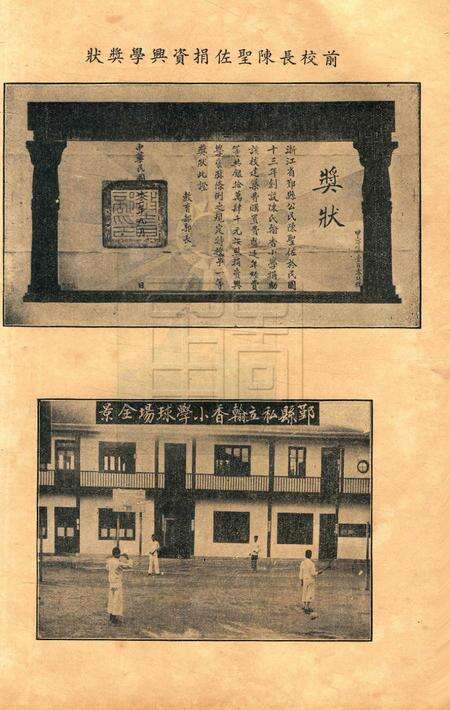 前校長陳聖佐捐資興學獎狀
獎狀
浙江省鄞縣公民陳聖佐於民國
十三年創設陳氏翰香小學捐助
該校建築費購置費暨逐年經費
等共銀拾萬肆千元按照捐資興
學褒獎條例之規定特授予一等
獎狀此證
教育部部長
中華民國
日
鄞縣私立翰香小學球場全景